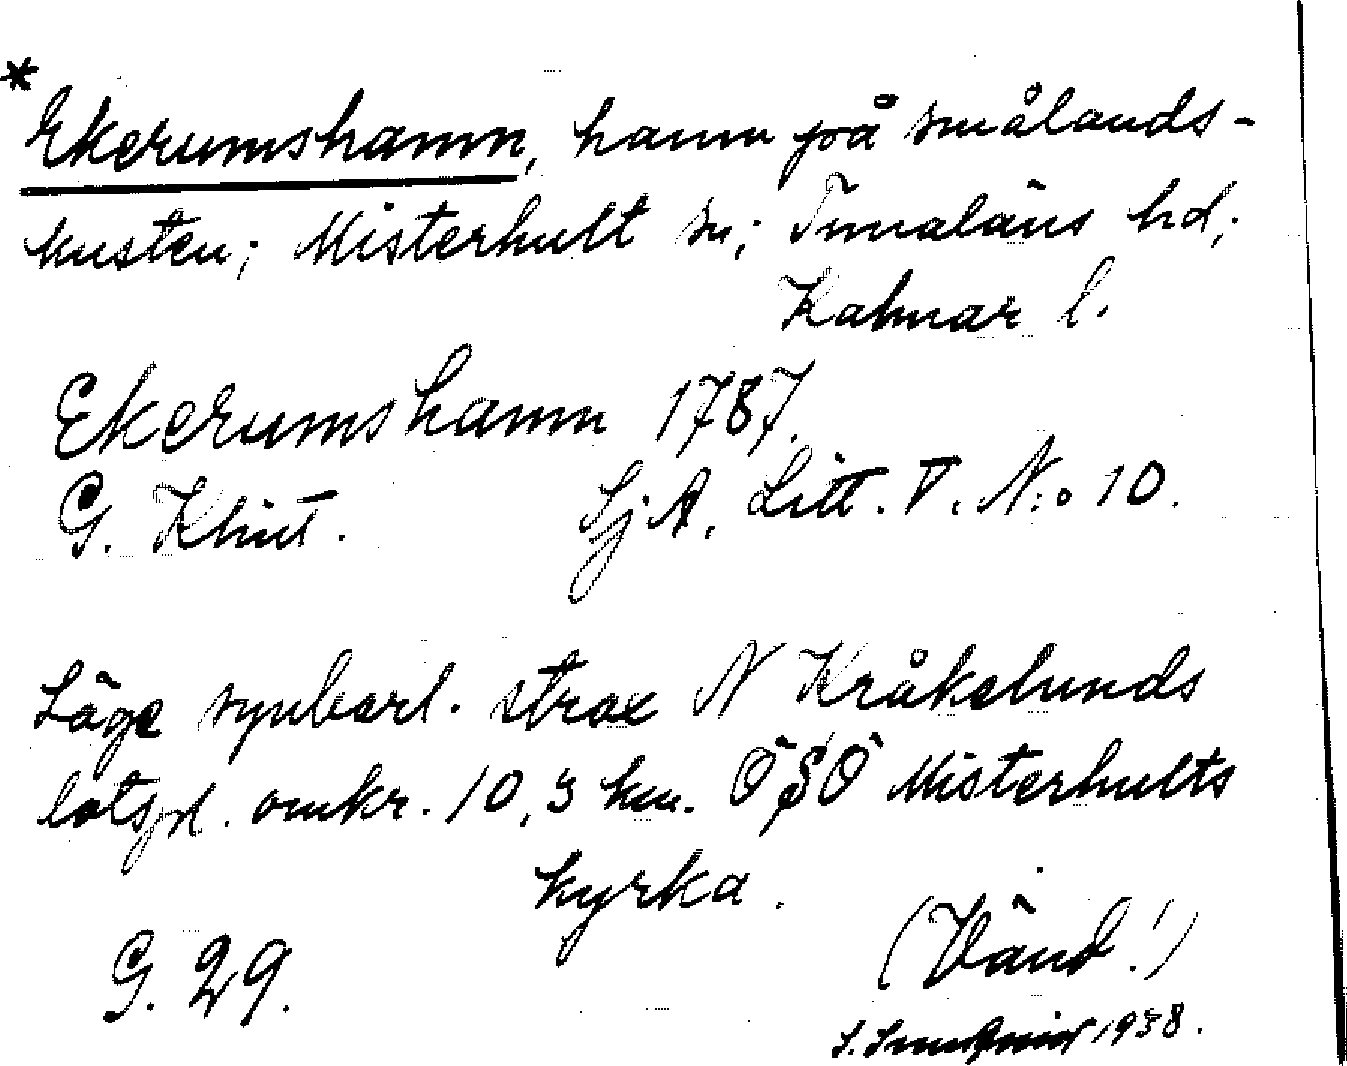 *
Ekerumshamn, hamn på smålands-
kusten; Misterhult sn; Tunaläns hd;
Kalmar l.
Ekerumshamn 1787.
G. Klint. SjA, Litt. V. N:o 10.
Läge synbarl. strax N Kråkelunds
lotspl. omkr. 10,3 km. ÖSÖ Misterhults
kyrka.
(Vänd!)
G. 29.
1938.